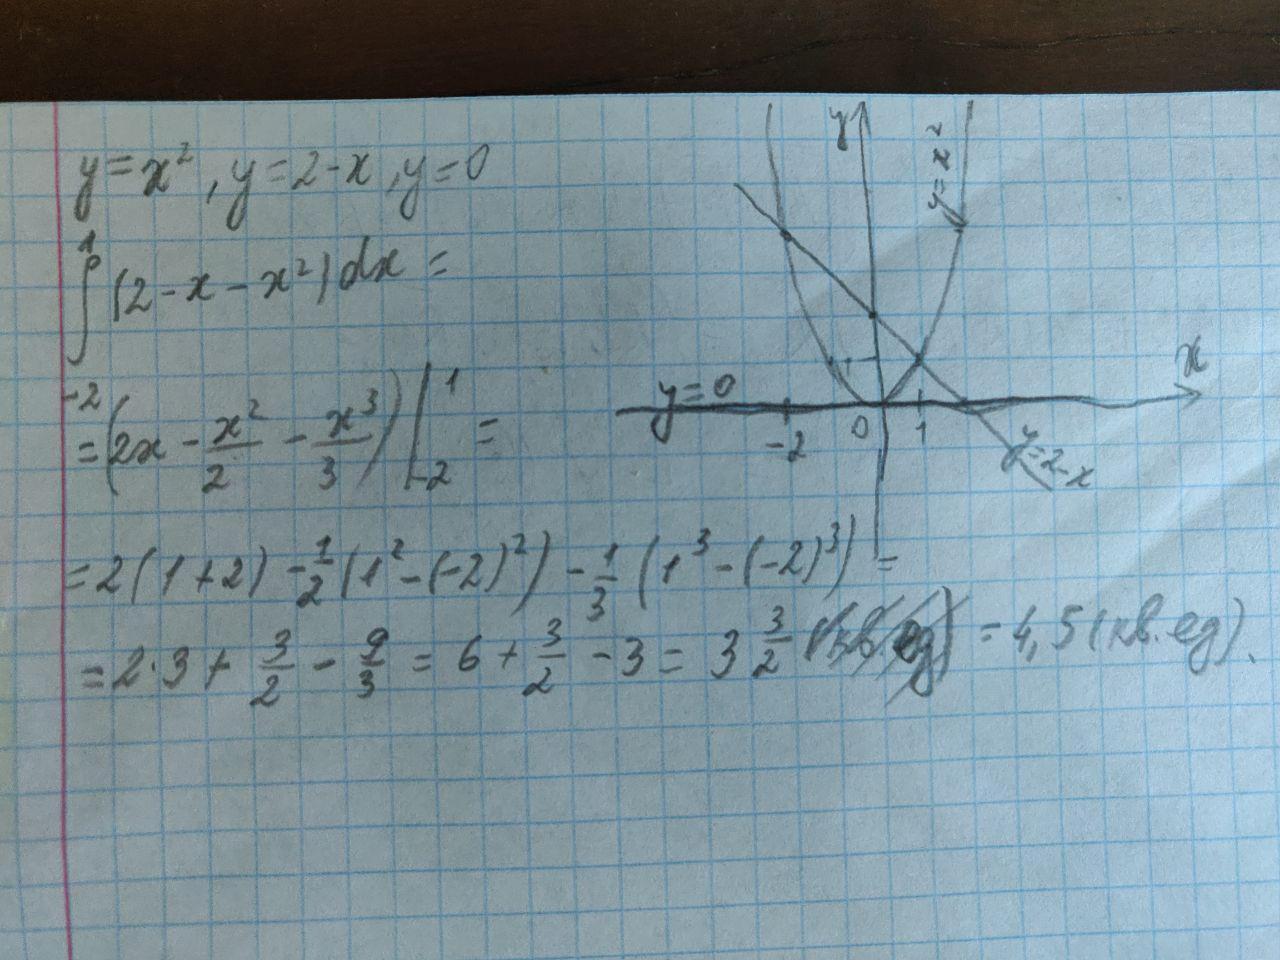 y=x², y=2-x, y=0
∫₋₂¹ (2-x-x²)dx =
= (2x - x²/2 - x³/3) |₋₂¹ =
= 2(1+2) - 1/2 (1²-(-2)²) - 1/3 (1³-(-2)³) =
= 2·3 + 3/2 - 9/3 = 6 + 3/2 - 3 = 3 3/2 = 4,5 (кв. ед).
y
y=x²
x
y=0
1
-2
0
1
y=2-x